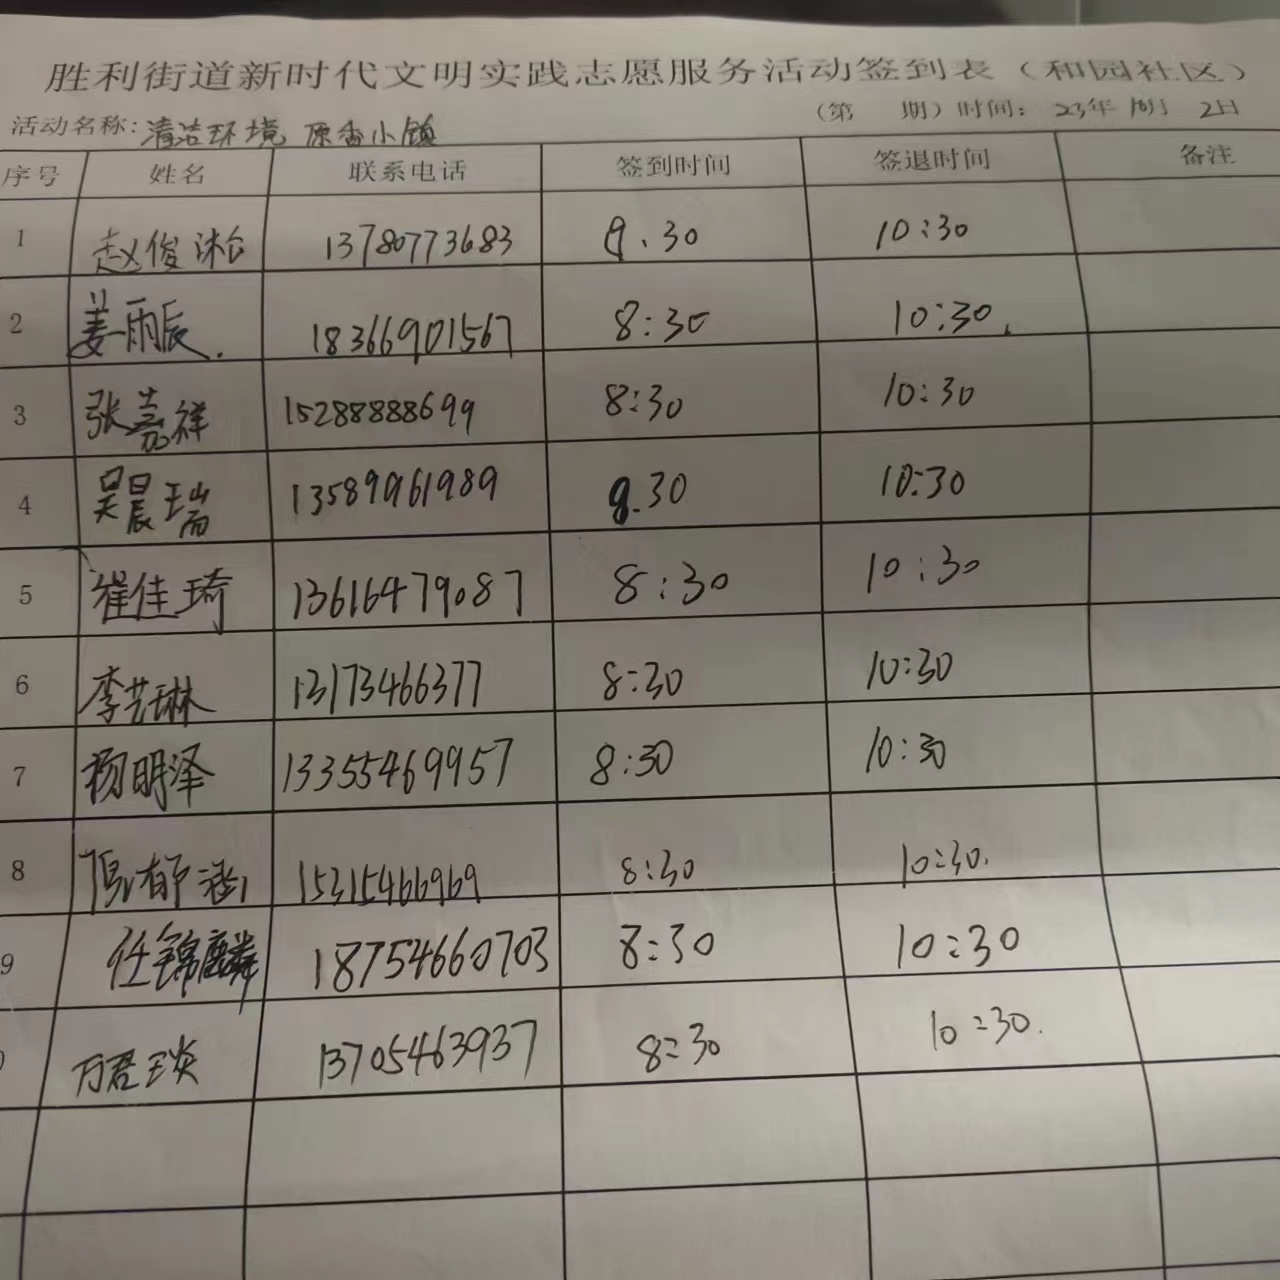 胜利街道新时代文明实践志愿服务活动签到表（和园社区）
（第 期）时间：23年 月 2日
活动名称：清洁环境 原香小镇
序号 姓名 联系电话 签到时间 签退时间 备注
1 赵俊 13780773683 9.30 10:30
2 姜雨辰. 18366901567 8:30 10:30.
3 张嘉祥 15288888699 8:30 10:30
4 吴晨瑞 13589961989 9.30 10:30
5 崔佳琦 13616479087 8:30 10:30
6 李艺琳 13173466377 8:30 10:30
7 杨明泽 13355469957 8:30 10:30
8 15315466969 8:30 10:30.
9 任锦麟 18754660703 8:30 10:30
万君琰 13705463937 8:30 10:30.